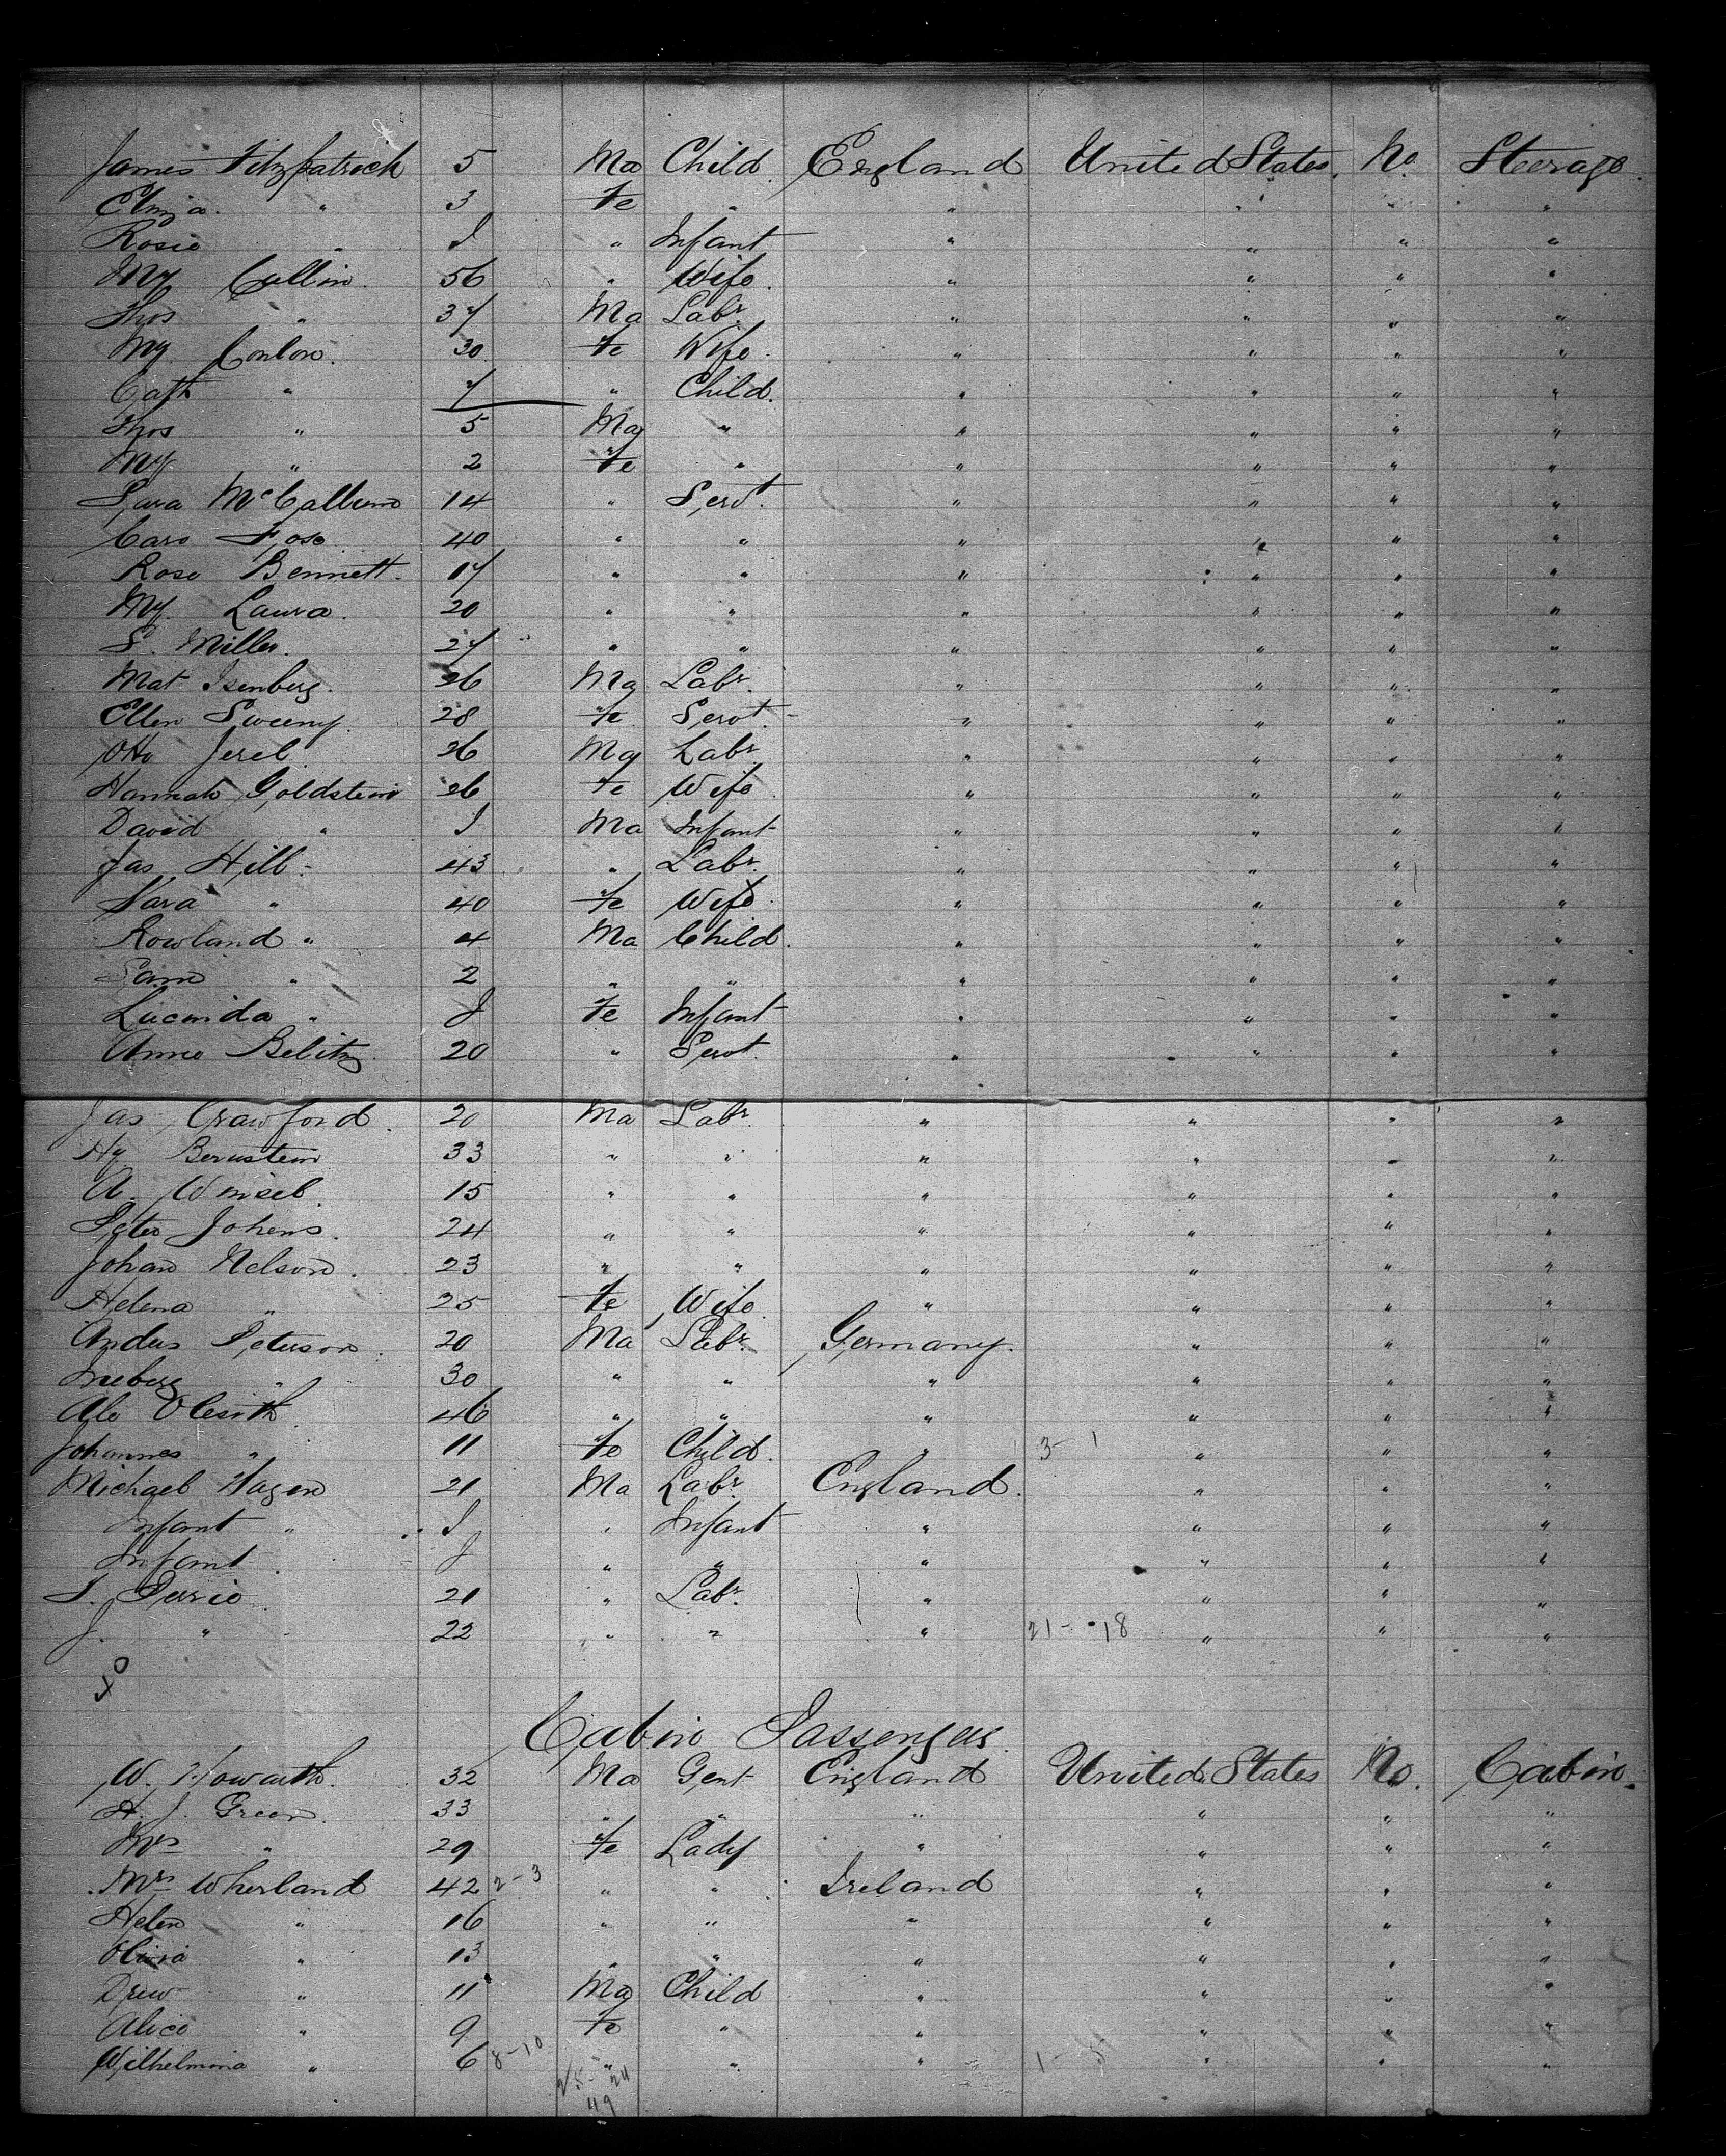 James Fitzpatrick 5 Ma Child. England United States. No. Steerage.
Eliza. " 3 Fe " " " " "
Rosie " I " Infant " " " "
My Cullin. 56 " Wife. " " " "
Thos " 37 Ma Labr. " " " "
My Conlon. 30 Fe Wife. " " " "
Cath " 7 " Child. " " " "
Thos " 5 Ma " " " " "
My " 2 Fe " " " " "
Sara McCallum 14 " Servt. " " " "
Caro 40 " " " " " "
Rose Bennett. 17 " " " " " "
My. Laura. 20 " " " " " "
S. Miller. 27 " " " " " "
Mat Isenberg. 26 Ma Labr. " " " "
Ellen Sweeny. 28 Fe Servt. " " " "
Otto Jerel 26 Ma Labr. " " " "
Hannah Goldstein 26 Fe Wife " " " "
David " I Ma Infant " " " "
Jas Hill. 43 " Labr. " " " "
Sara " 40 Fe Wife. " " " "
Rowland " 4 Ma Child. " " " "
Sam " 2 " " " " " "
Lucinda " I Fe Infant " " " "
Anne Belitz 20 " Servt. " " " "
Jas Crawford. 20 Ma Labr. " " " "
Hy Bernstein 33 " " " " " "
A. 15 " " " " " "
Peter Johens. 24 " " " " " "
Johan Nelson. 23 " " " " " "
Helena " 25 Fe Wife " " " "
Andus Peterson. 20 Ma Labr. Germany. " " "
" 30 " " " " " "
Ale 46 " " " " " "
Johannes " 11 Fe Child. " 3-1 " " "
Michael Hagen 21 Ma Labr. England. " " "
Infant " I " Infant " " " "
Infant. I " " " " " "
21 " Labr. " " " "
J. " 22 " " " 21-18 " " "
Cabin Passengers.
W. Howarth. 32 Ma Gent England United States No. Cabin.
H. J. Green. 33 " " " " " "
Mrs " 29 Fe Lady " " " "
Mrs Wherland 42 2-3 " " Ireland " " "
Helen " 16 " " " " " "
Olivia " 13 " " " " " "
Drew " 11 Ma Child " " " "
Alice " 9 Fe " " " " "
Wilhelmina " 6 8-10 " " " 1-5 " " "
25-24
49